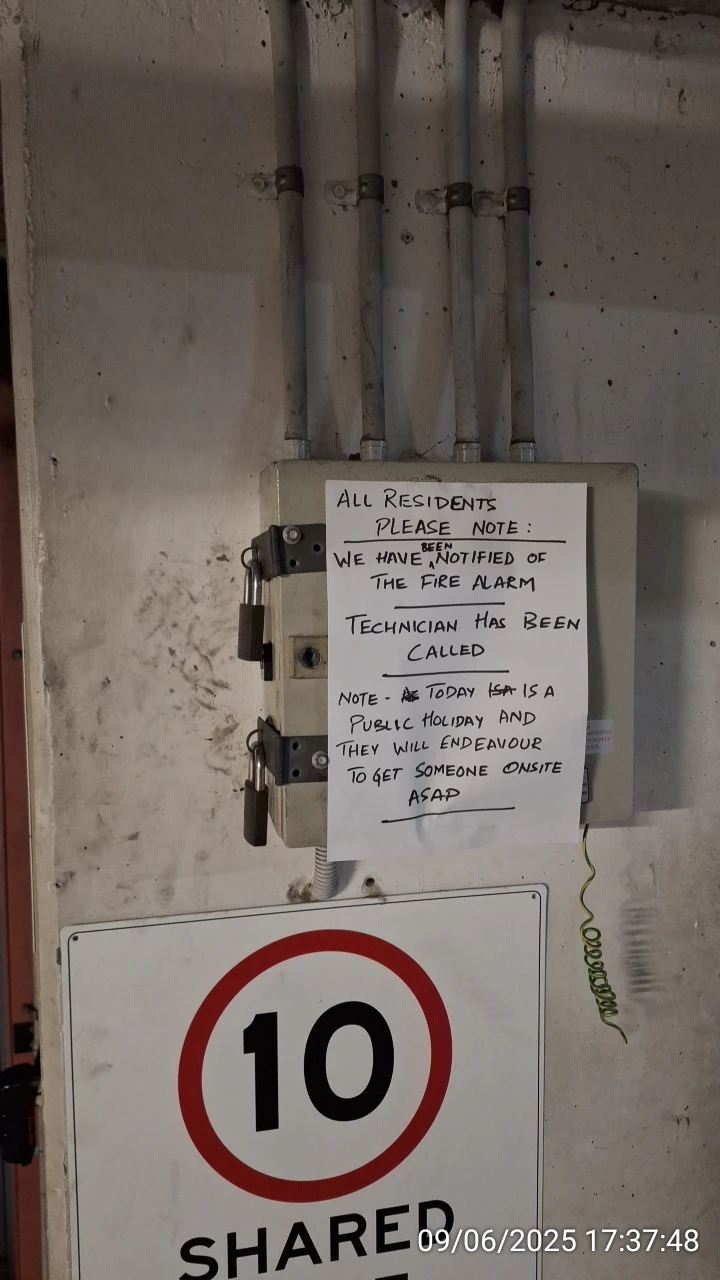 ALL RESIDENTS
PLEASE NOTE:
WE HAVE BEEN NOTIFIED OF
THE FIRE ALARM
TECHNICIAN HAS BEEN
CALLED
NOTE - TODAY IS A
PUBLIC HOLIDAY AND
THEY WILL ENDEAVOUR
TO GET SOMEONE ONSITE
ASAP
10
SHARED
09/06/2025 17:37:48